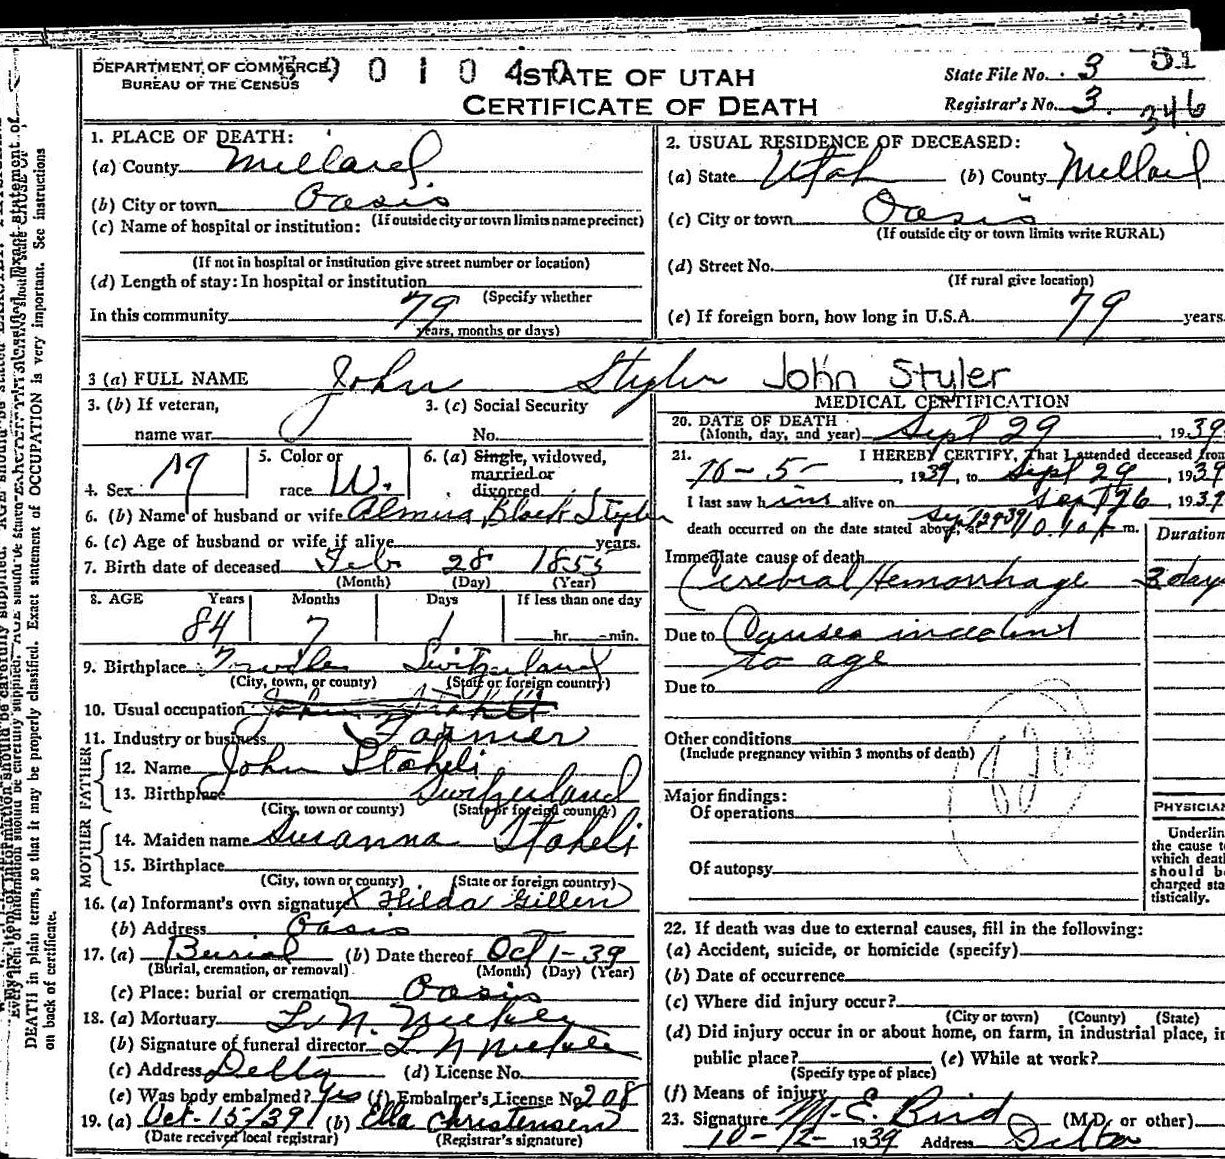 DEPARTMENT OF COMMERCE
BUREAU OF THE CENSUS
3 9 0 1 0 4 0
STATE OF UTAH
CERTIFICATE OF DEATH
State File No. 3 51
Registrar's No. 3. 346
1. PLACE OF DEATH:
(a) County Millard
(b) City or town Oasis
(If outside city or town limits name precinct)
(c) Name of hospital or institution:
(If not in hospital or institution give street number or location)
(d) Length of stay: In hospital or institution
(Specify whether
In this community 79
years, months or days)
2. USUAL RESIDENCE OF DECEASED:
(a) State Utah (b) County Millard
(c) City or town Oasis
(If outside city or town limits write RURAL)
(d) Street No.
(If rural give location)
(e) If foreign born, how long in U.S.A. 79 years.
3 (a) FULL NAME John Styler John Styler
3. (b) If veteran,
name war
3. (c) Social Security
No.
4. Sex M
5. Color or
race W.
6. (a) Single, widowed,
married or
divorced
6. (b) Name of husband or wife Almira Black Styler
6. (c) Age of husband or wife if alive years.
7. Birth date of deceased Feb 28 1855
(Month) (Day) (Year)
8. AGE Years Months Days If less than one day
84 7 1 hr. min.
9. Birthplace Switzerland
(City, town, or county) (State or foreign country)
10. Usual occupation John Staheli
11. Industry or business Farmer
FATHER
12. Name John Staheli
13. Birthplace Switzerland
(City, town or county) (State or foreign country)
MOTHER
14. Maiden name Susanna Staheli
15. Birthplace
(City, town or county) (State or foreign country)
16. (a) Informant's own signature X Hilda Gillen
(b) Address Oasis
17. (a) Burial (b) Date thereof Oct 1-39
(Burial, cremation, or removal) (Month) (Day) (Year)
(c) Place: burial or cremation Oasis
18. (a) Mortuary L. N.
(b) Signature of funeral director L N
(c) Address Delta (d) License No.
(e) Was body embalmed? Yes (f) Embalmer's License No. 208
19. (a) Oct-15/39 (b) Ella Christensen
(Date received local registrar) (Registrar's signature)
MEDICAL CERTIFICATION
20. DATE OF DEATH
(Month, day, and year) Sept 29, 1939
21. I HEREBY CERTIFY, That I attended deceased from
10-5-, 1939, to Sept 29, 1939
I last saw him alive on Sept 26, 1939
death occurred on the date stated above, at 10.10 P m.
Duration
Immediate cause of death
Cerebral Hemorrhage 3 days
Due to Causes incident
to age
Due to
Other conditions
(Include pregnancy within 3 months of death)
Major findings:
Of operations
Of autopsy
PHYSICIAN
Underline
the cause to
which death
should be
charged sta-
tistically.
22. If death was due to external causes, fill in the following:
(a) Accident, suicide, or homicide (specify)
(b) Date of occurrence
(c) Where did injury occur?
(City or town) (County) (State)
(d) Did injury occur in or about home, on farm, in industrial place, in
public place? (e) While at work?
(Specify type of place)
(f) Means of injury
23. Signature M. E. Bird (M.D. or other)
10-12- 1939 Address Delta
DEATH in plain terms, so that it may be properly classified. Exact statement of OCCUPATION is very important. See instructions
on back of certificate.